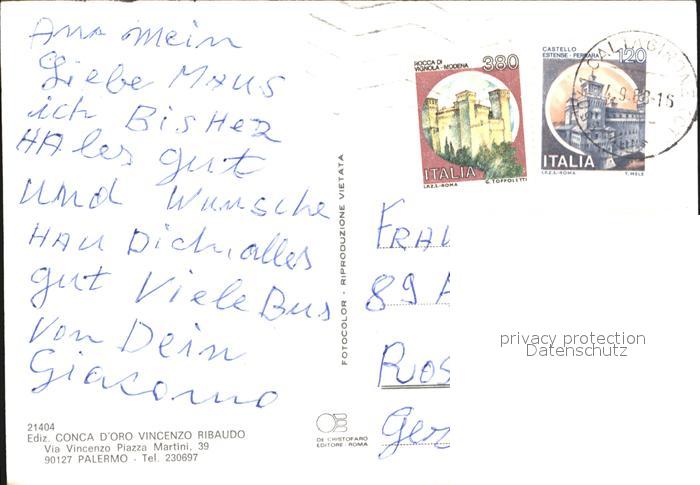 Ana mein
Liebe Maus
ich Bisher
HA les gut
und Wunsche
HAU Dich, alles
gut Viele Bus
Von Dein
Giacomo
21404
Ediz. CONCA D'ORO VINCENZO RIBAUDO
Via Vincenzo Piazza Martini, 39
90127 PALERMO - Tel. 230697
FOTOCOLOR - RIPRODUZIONE VIETATA
DE CRISTOFARO
EDITORE - ROMA
ROCCA DI
VIGNOLA - MODENA
380
ITALIA
I.P.Z.S. - ROMA
G. TOPPOLETTI
CASTELLO
ESTENSE - FERRARA
120
ITALIA
I.P.Z.S. - ROMA
T. MELE
FRAU
89 A
ROS
Ger
privacy protection
Datenschutz